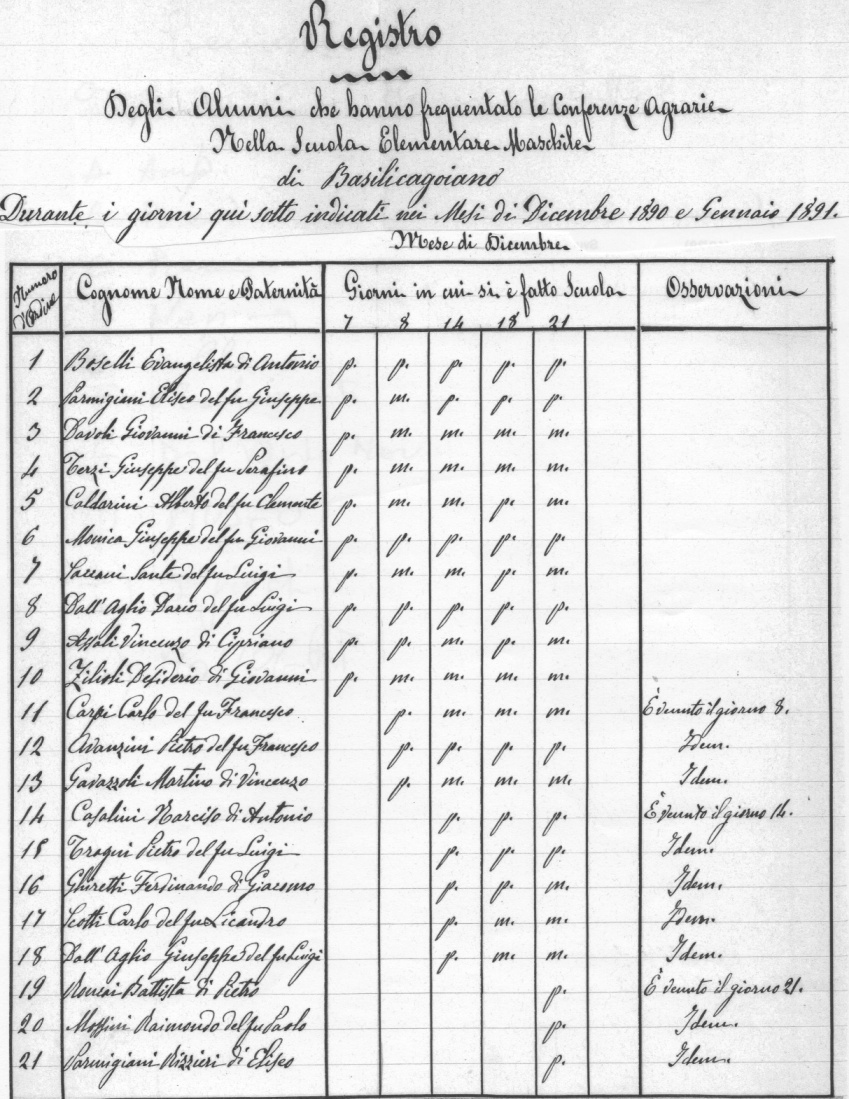 Registro
Degli Alunni che hanno frequentato le Conferenze Agrarie
Nella Scuola Elementare Maschile
di Basilicagoiano
Durante i giorni qui sotto indicati nei Mesi di Dicembre 1890 e Gennaio 1891.
Mese di Dicembre
Numero d'Ordine Cognome Nome e Paternità Giorni in cui si è fatto Scuola Osservazioni
7 8 14 18 21
1 Boselli Evangelista di Antonio p. p. p. p. p.
2 Parmigiani Eliseo del fu Giuseppe p. m. p. p. p.
3 Davoli Giovanni di Francesco p. m. m. m. m.
4 Terzi Giuseppe del fu Serafino p. m. m. m. m.
5 Caldarini Alberto del fu Clemente p. m. m. p. m.
6 Monica Giuseppe del fu Giovanni p. p. p. p. p.
7 Saccani Sante del fu Luigi p. m. m. p. m.
8 Dall'Aglio Dario del fu Luigi p. p. p. p. p.
9 Vincenzo di Cipriano p. p. m. p. m.
10 Zilioli Desiderio di Giovanni p. m. m. m. m.
11 Carpi Carlo del fu Francesco p. m. m. m. È venuto il giorno 8.
12 Avanzini Pietro del fu Francesco p. p. p. p. Idem.
13 Gavazzoli Martino di Vincenzo p. m. m. m. Idem.
14 Casalini Narciso di Antonio p. p. p. È venuto il giorno 14.
15 Pietro del fu Luigi p. p. p. Idem.
16 Ghiretti Ferdinando di Giacomo p. p. m. Idem.
17 Scotti Carlo del fu Licandro p. m. m. Idem.
18 Dall'Aglio Giuseppe del fu Luigi p. m. m. Idem.
19 Battista di Pietro p. È venuto il giorno 21.
20 Raimondo del fu Paolo p. Idem.
21 Parmigiani Rizzieri di Eliseo p. Idem.